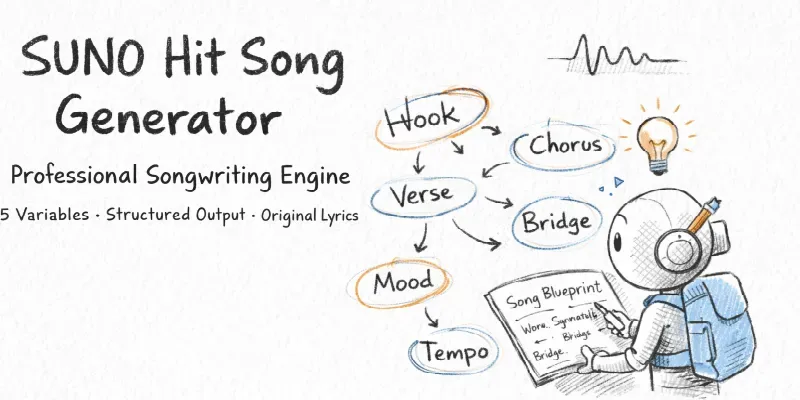 SUNO Hit Song
Generator
Professional Songwriting Engine
5 Variables · Structured Output · Original Lyrics
Hook
Chorus
Verse
Bridge
Mood
Tempo
Song Blueprint
Bridge
Bridge